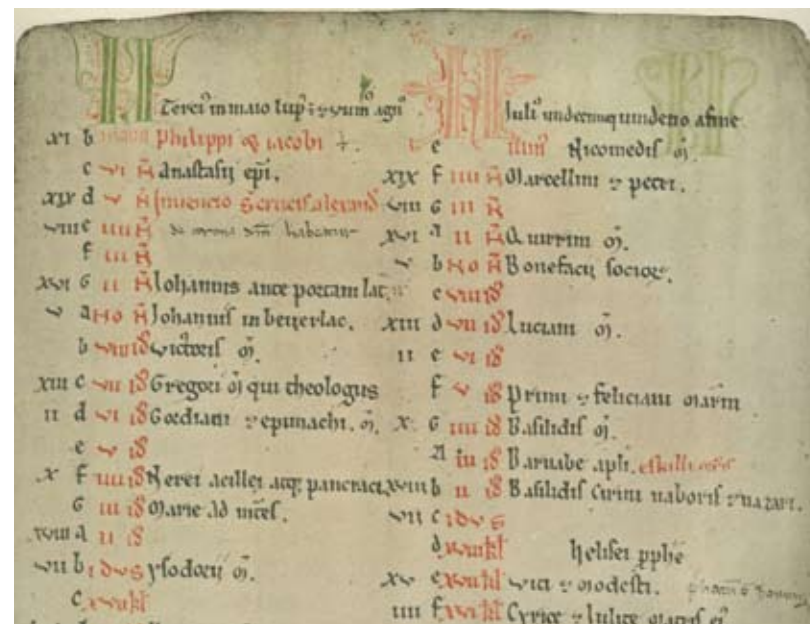 Terci' in maio lup' ē ⁊ vii m' agn'
xi b Philippi ⁊ iacobi
c vi N̄ Anastasii ep̄i.
xix d v N̄ Inuencio S crucis alexand
viii e iiii N̄
f iii N̄
xvi G ii N̄ Iohannis ante portam lat
v a No N̄ Iohannis in beuerlac.
b viii id' victoris m̄.
xiii c vii id' Gregori m̄ qui theologus
ii d vi id' Gordiani ⁊ epimachi. m̄.
e v id'
x f iiii id' Nerei acillei atq; pancraci
G iii id' Marie ad m̄res.
xviii a ii id'
vii b idus ysodorii m̄.
c xvii kl
Iuli' undecimo quindeno a fine
e Nicomedis m̄
xix f iiii N̄ Marcellini ⁊ petri.
viii G iii N̄
xvi a ii N̄ Quirini m̄.
v b No N̄ Bonefacii socior.
c viii id'
xiii d vii id' Luciani m̄.
ii e vi id'
f v id' Primi ⁊ feliciani
x G iiii id' Basilidis m̄.
a iii id' Barnabe apl̄i. eskilli
xviii b ii id' Basilidis Cirini naboris ⁊ nazari.
vii c idus
d xviii kl helisei p̄phe
xv e xvii kl viti ⁊ modesti.
iiii f xvi kl Cyrice ⁊ Iulite